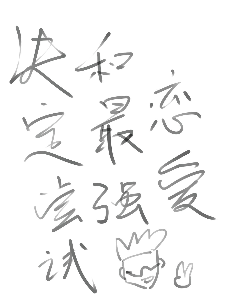 决定尝试
和最强
恋爱